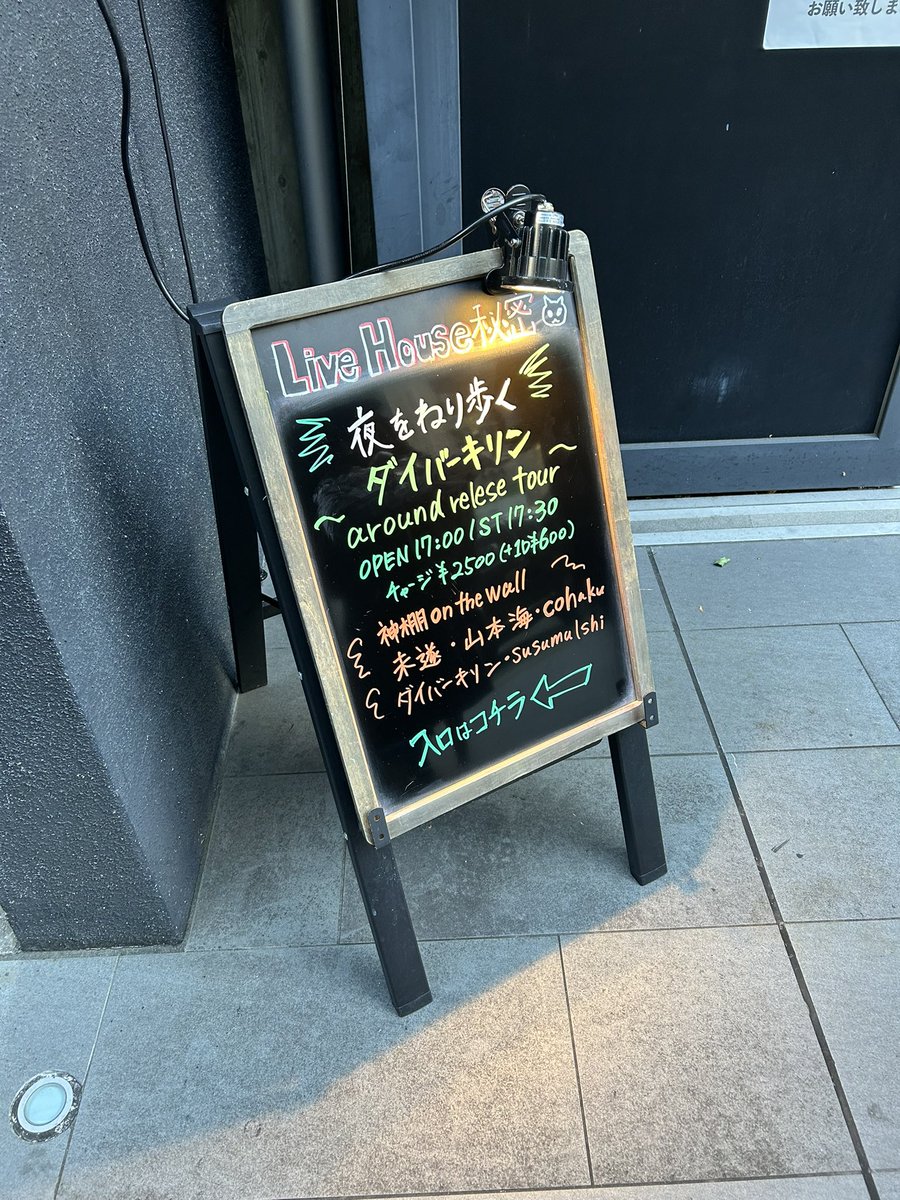 お願い致しま
Live House 秘密
夜をねり歩く
ダイバーキリン
〜around relese tour〜
OPEN 17:00 / ST 17:30
チャージ ¥2500 (+1D¥600)
神棚 on the wall
未遂・山本海・cohaku
ダイバーキリン・susumaIshi
入口はコチラ